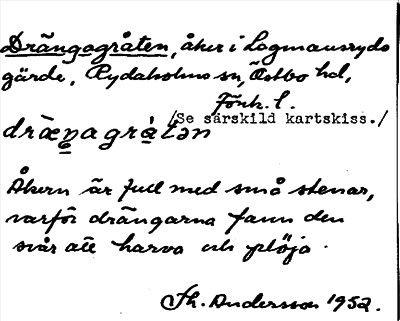 Drängagråten, åker i Lagmansryds
gärde, Rydaholms sn, Östbo hd,
Jönk. l.
/Se särskild kartskiss./
dräŋagrå̀tən
Åkern är full med små stenar,
varför drängarna fann den
svår att harva och plöja.
Th. Andersson 1952.